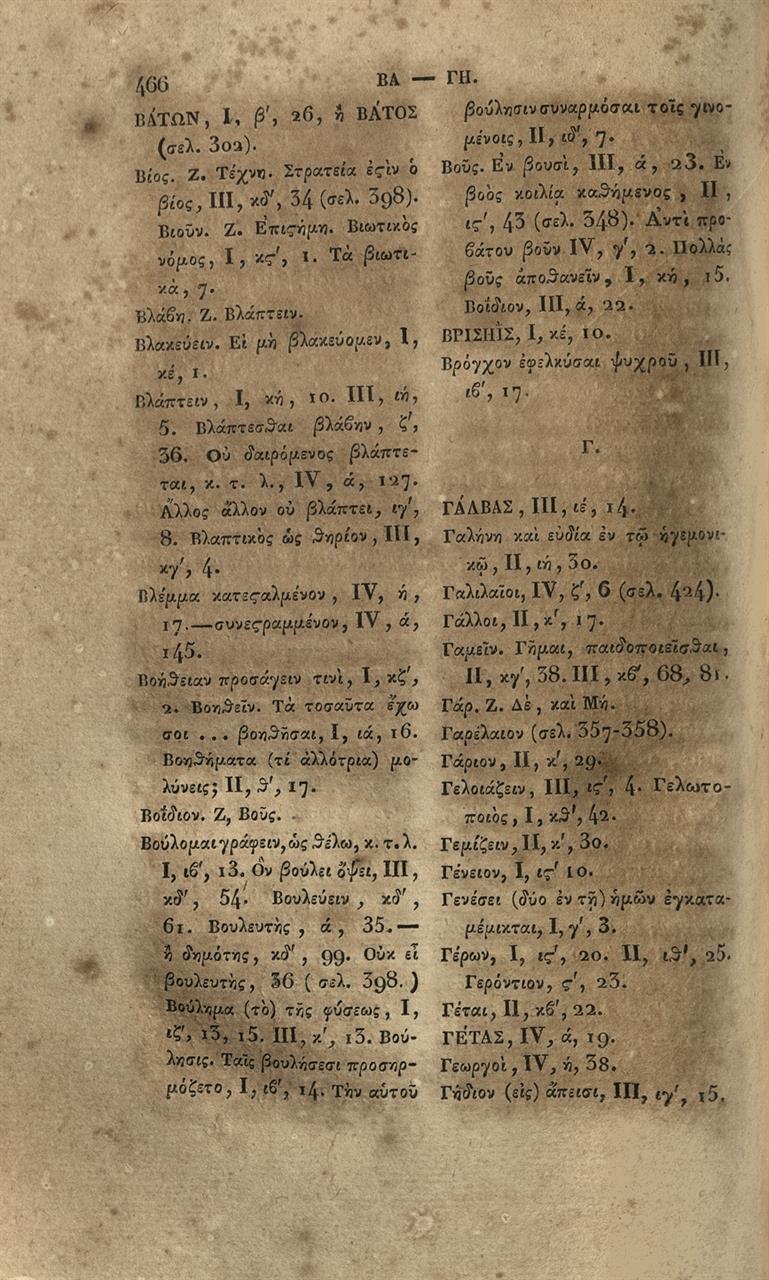 466
ΒΑ — ΓΗ.
ΒΆΤΩΝ, I, β′, 26, ἢ ΒΆΤΟΣ
(σελ. 302).
Βίος. Ζ. Τέχνη. Στρατεία ἐϛὶν ὁ
βίος, III, κδ′, 34 (σελ. 398).
Βιοῦν. Ζ. Ἐπιϛήμη. Βιωτικὸς
νόμος, I, κϛ′, 1. Τὰ βιωτι-
κὰ, 7.
Βλάβη. Ζ. Βλάπτειν.
Βλακεύειν. Εἰ μὴ βλακεύομεν, I,
κέ, 1.
Βλάπτειν, I, κή, 10. III, ιή,
5. Βλάπτεσθαι βλάβην, ζ′,
36. Οὐ δαιρόμενος βλάπτε-
ται, κ. τ. λ., IV, ά, 127.
Ἄλλος ἄλλον οὐ βλάπτει, ιγ′,
8. Βλαπτικὸς ὡς θηρίον, III,
κγ′, 4.
Βλέμμα κατεϛαλμένον, IV, ή,
17.—συνεϛραμμένον, IV, ά,
145.
Βοήθειαν προσάγειν τινὶ, I, κζ′,
2. Βοηθεῖν. Τὰ τοσαῦτα ἔχω
σοι ... βοηθῆσαι, I, ιά, 16.
Βοηθήματα (τί ἀλλότρια) μο-
λύνεις; II, θ′, 17.
Βοΐδιον. Ζ, Βοῦς.
Βούλομαι γράφειν, ὡς θέλω, κ. τ. λ.
I, ιβ′, 13. Ὃν βούλει ὄψει, III,
κδ′, 54. Βουλεύειν, κδ′,
61. Βουλευτὴς, ά, 35.—
ἢ δημότης, κδ′, 99. Οὐκ εἶ
βουλευτὴς, 36 (σελ. 398.)
Βούλημα (τὸ) τῆς φύσεως, I,
ιζ′, 13, 15. III, κ′, 13. Βού-
λησις. Ταῖς βουλήσεσι προσηρ-
μόζετο, I, ιβ′, 14. Τὴν αὑτοῦ
βούλησιν συναρμόσαι τοῖς γινο-
μένοις, II, ιδ′, 7.
Βοῦς. Ἐν βουσὶ, III, ά, 23. Ἐν
βοὸς κοιλίᾳ καθήμενος, II,
ιϛ′, 43 (σελ. 348). Ἀντὶ προ-
βάτου βοῦν IV, γ′, 2. Πολλάς
βοῦς ἀποθανεῖν, I, κή, 15.
Βοΐδιον, III, ά, 22.
ΒΡΙΣΗΪΣ, I, κέ, 10.
Βρόγχον ἐφελκύσαι ψυχροῦ, III,
ιβ′, 17.
Γ.
ΓΆΛΒΑΣ, III, ιέ, 14.
Γαλήνη καὶ εὐδία ἐν τῷ ἡγεμονι-
κῷ, II, ιή, 30.
Γαλιλαῖοι, IV, ζ′, 6 (σελ. 424).
Γάλλοι, II, κ′, 17.
Γαμεῖν. Γῆμαι, παιδοποιεῖσθαι,
II, κγ′, 38. III, κβ′, 68, 81.
Γάρ. Ζ. Δὲ, καὶ Μή.
Γαρέλαιον (σελ. 357-358).
Γάριον, II, κ′, 29.
Γελοιάζειν, III, ιϛ′, 4. Γελωτο-
ποιὸς, I, κθ′, 42.
Γεμίζειν, II, κ′, 30.
Γένειον, I, ιϛ′ 10.
Γενέσει (δύο ἐν τῇ) ἡμῶν ἐγκατα-
μέμικται, I, γ′, 3.
Γέρων, I, ιϛ′, 20. II, ιθ′, 25.
Γερόντιον, ϛ′, 23.
Γέται, II, κβ′, 22.
ΓΈΤΑΣ, IV, ά, 19.
Γεωργοὶ, IV, ή, 38.
Γῄδιον (εἰς) ἄπεισι, III, ιγ′, 15.